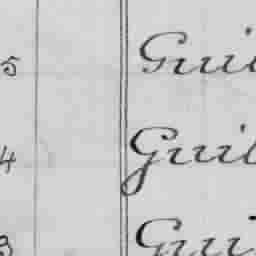 5 Guil
4 Guil
3 Gui